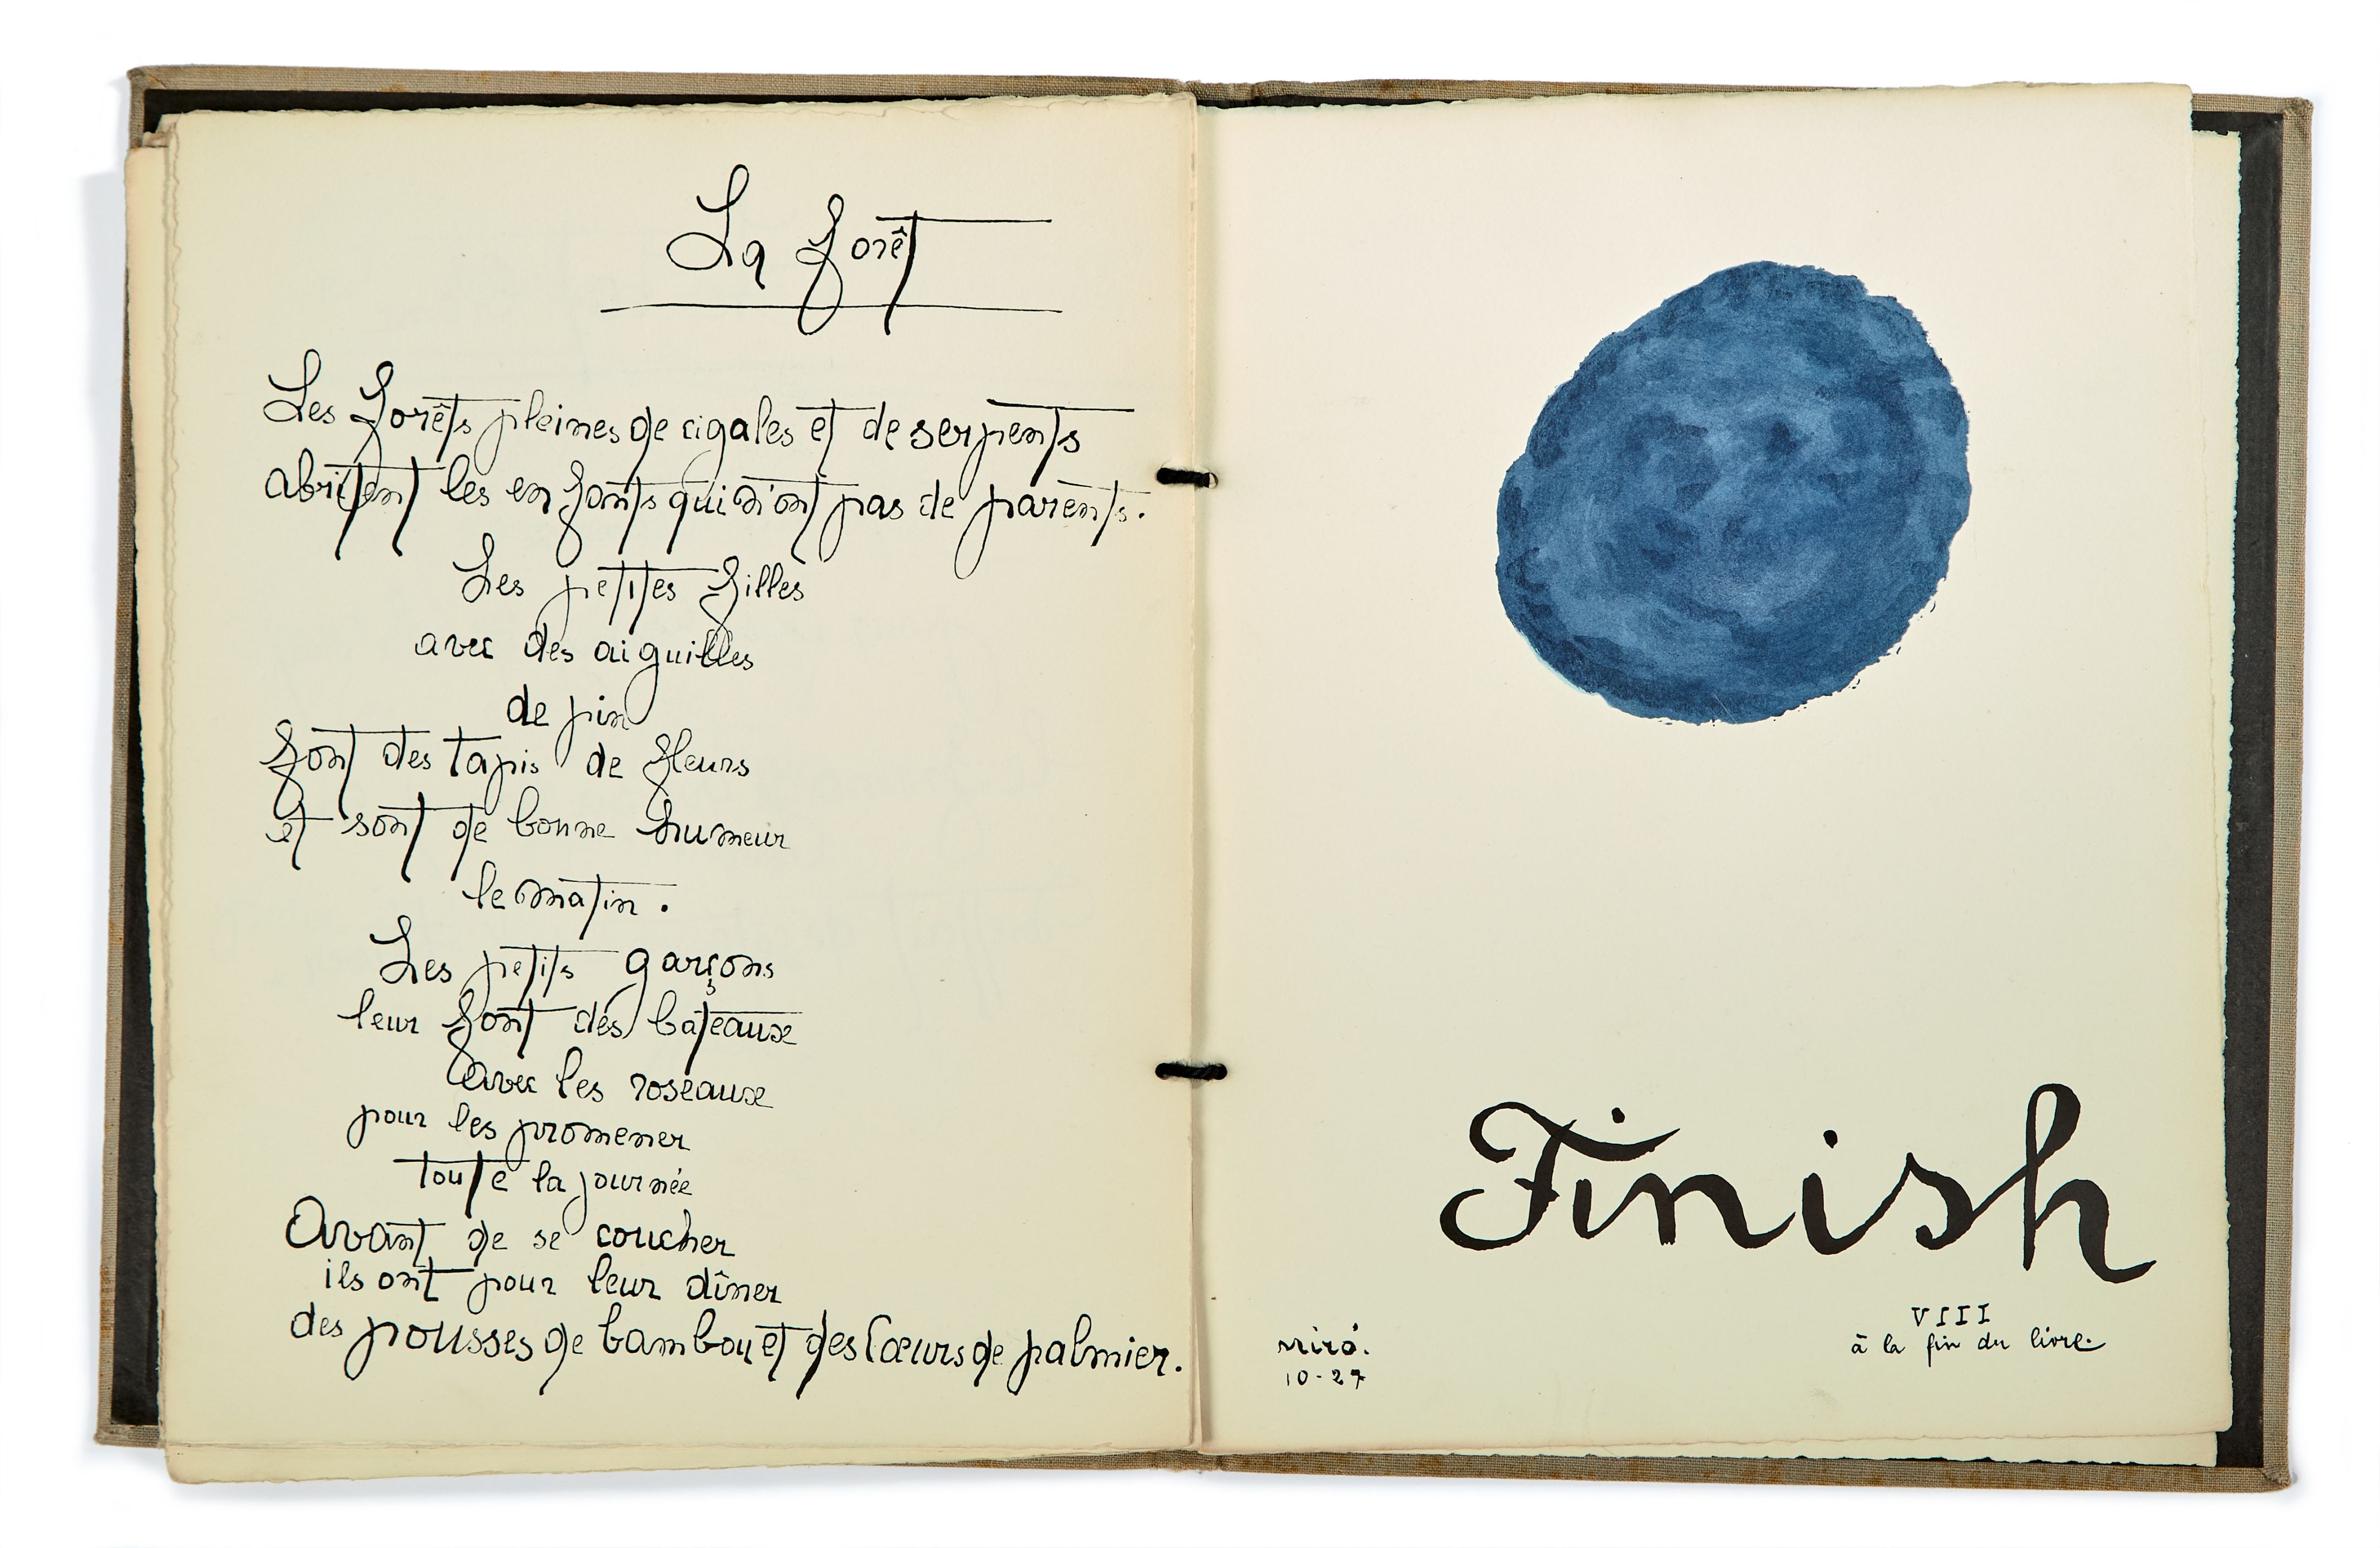 La forêt
Les forêts pleines de cigales et de serpents
abritent les enfants qui n'ont pas de parents.
Les petites filles
avec des aiguilles
de pin
font des tapis de fleurs
et sont de bonne humeur
le matin.
Les petits garçons
leur font des bateaux
avec les roseaux
pour les promener
toute la journée
Avant de se coucher
ils ont pour leur dîner
des pousses de bambou et des Cœurs de palmier.
Finish
VIII
à la fin du livre
miró.
10-27